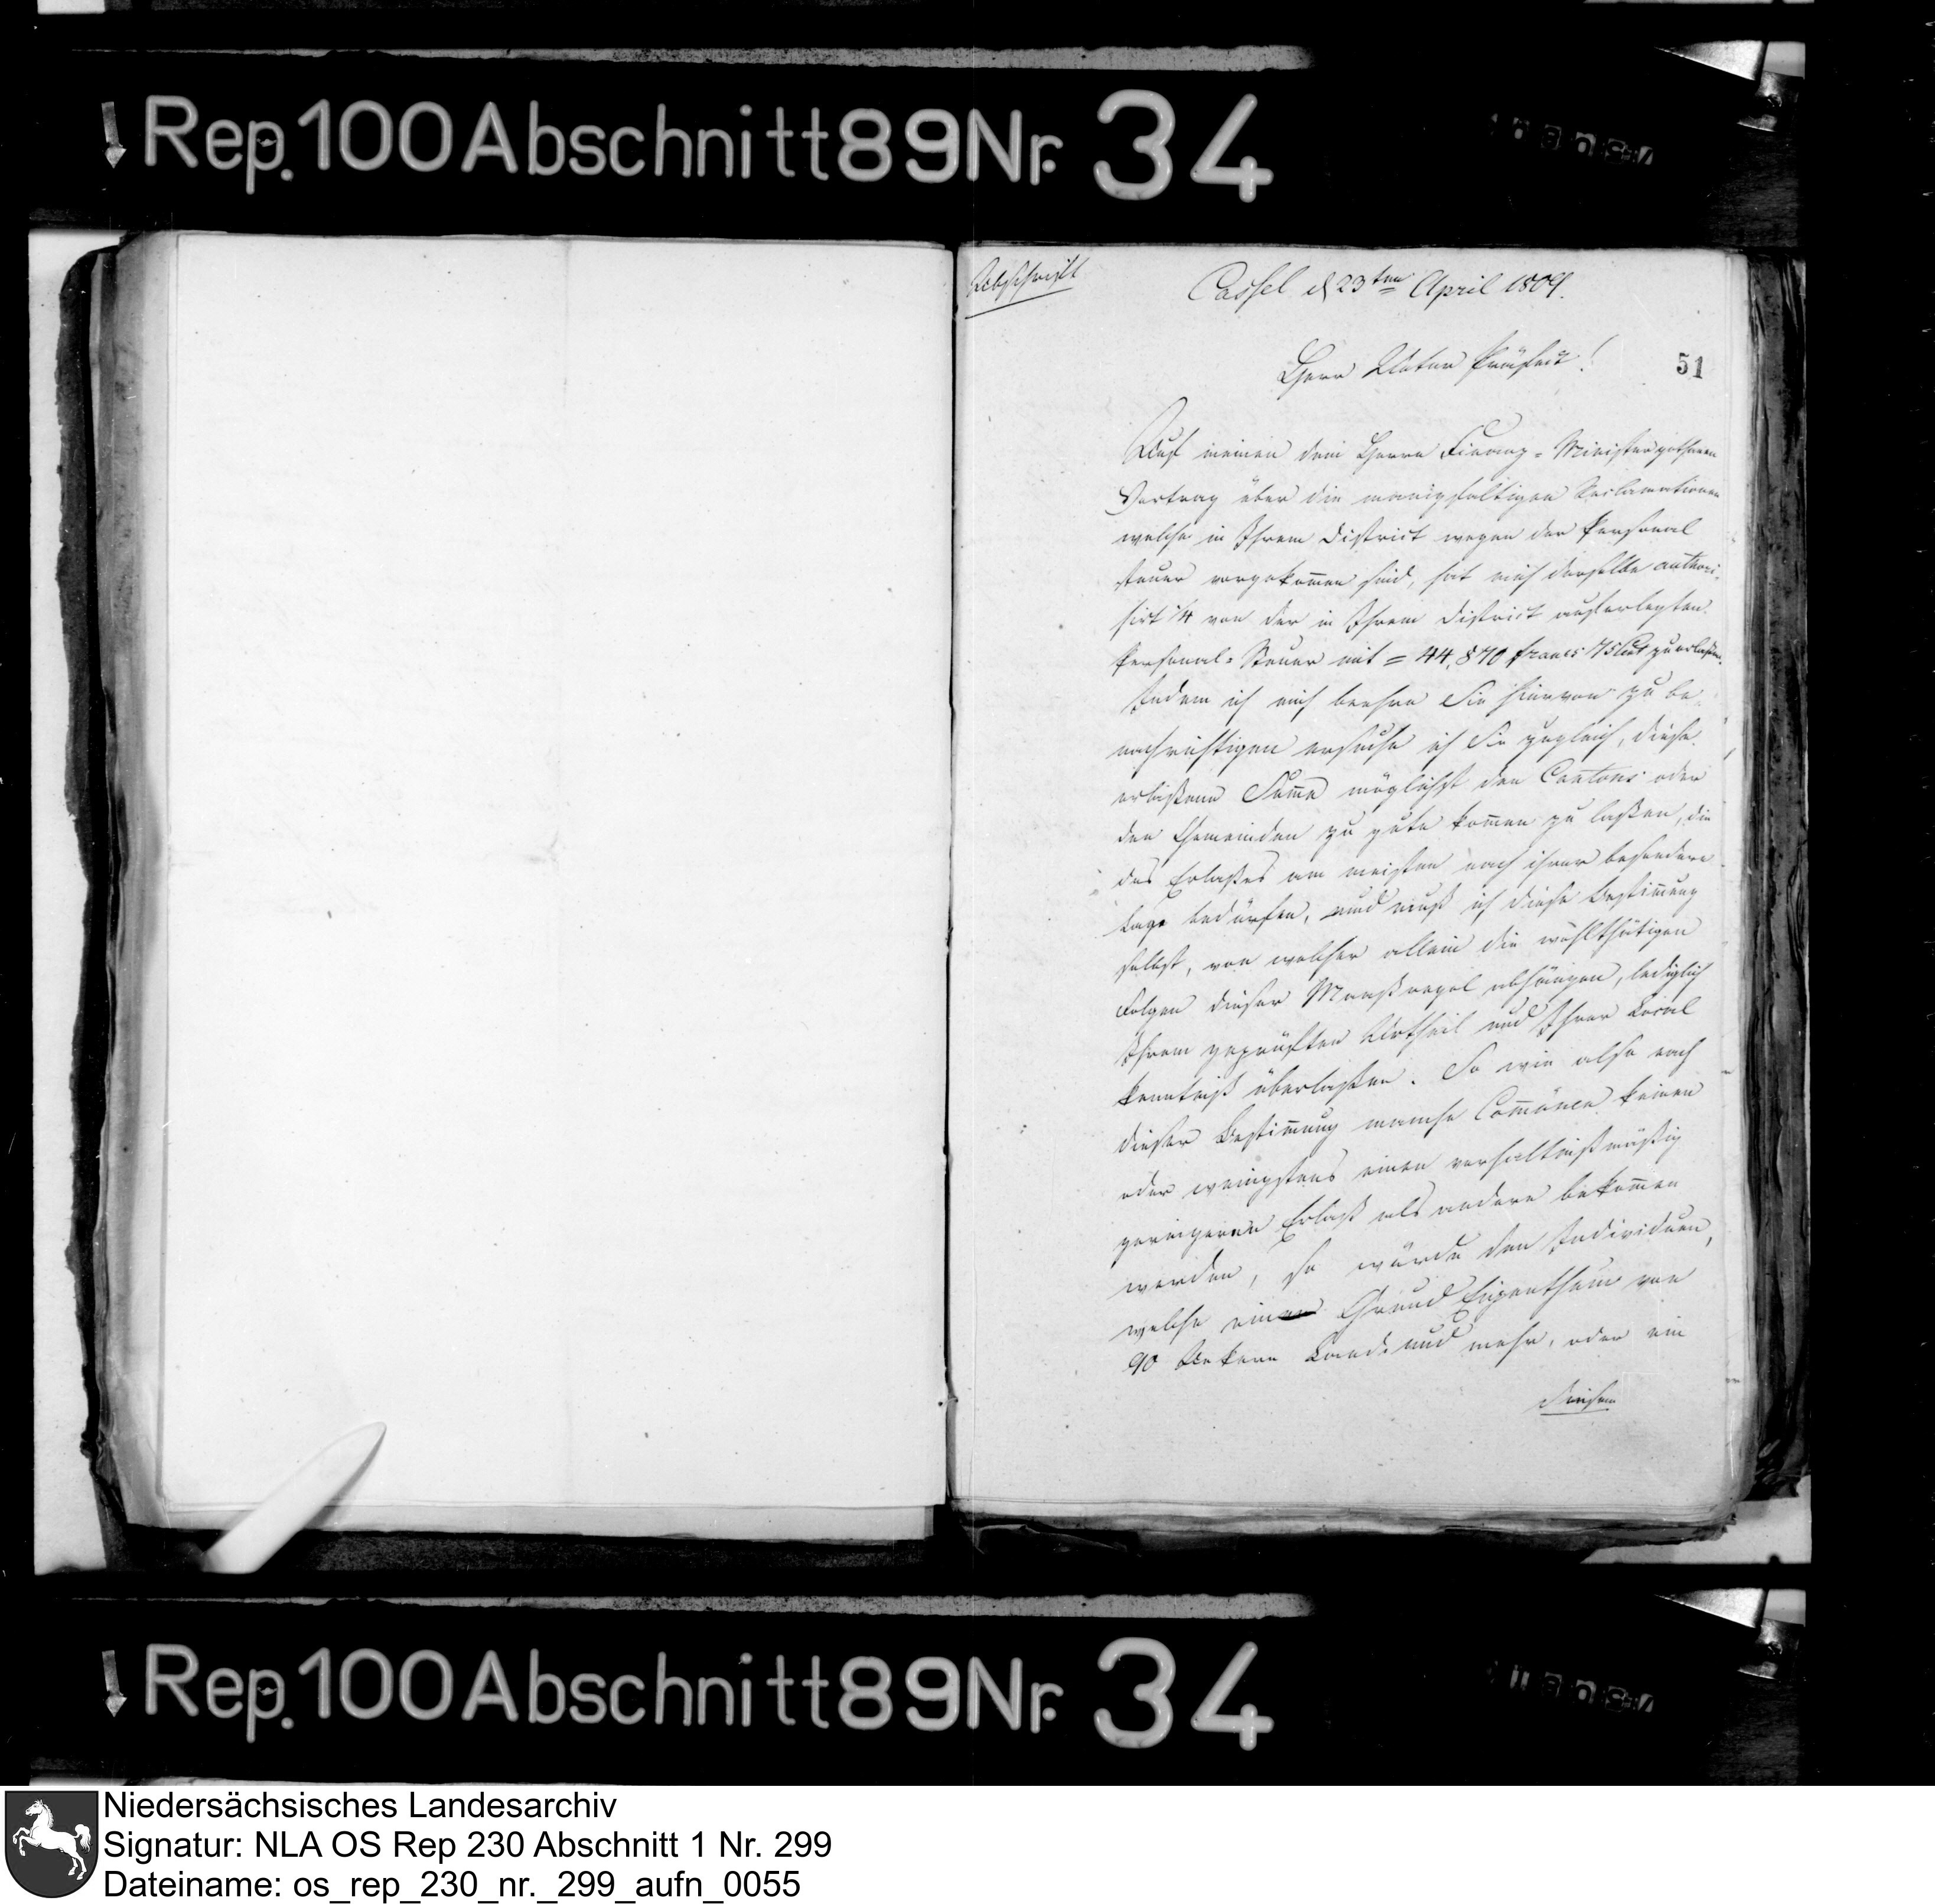 Rep. 100 Abschnitt 89 Nr. 34
Abschrift
Cassel d 23ten April 1809.
Herr Unter Präfect!
51
Auf meinen dem Herrn Finanz-Minister gethanen
Vortrag über die manigfaltigen Reclamationen
welche in Ihrem District wegen der Personal
steuer vorgekom̅en sind, hat mich derselbe authori-
sirt 1/4 von der in Ihrem District auferlegten
Personal-Steuer mit = 44,870 francs 75 Cent zu erlaßen.
Indem ich mich beehre Sie hiervon zu be-
nachrichtigen ersuche ich Sie zugleich, diese
erlaßene Sum̅e möglichst den Cantons oder
den Gemeinden zu gute kom̅en zu laßen, die
des Erlaßes am meisten nach ihrer besondern
Lage bedürfen, und muß ich diese Bestim̅ung
selbst, von welcher allein die wohlthätigen
Folgen dieser Maasregel abhängen, lediglich
Ihrem geprüften Urtheil und Ihrer Local
kenntniß überlaßen. So wie also nach
dieser Bestim̅ung manche Com̅ünen keinen
oder wenigstens einen verhaltnißmäßig
geringeren Erlaß als andere bekom̅en
werden, so würde den Individuen,
welche ein Grund Eigenthum von
90 Aekern Land und mehr, oder ein
diesem
Rep. 100 Abschnitt 89 Nr. 34
Niedersächsisches Landesarchiv
Signatur: NLA OS Rep 230 Abschnitt 1 Nr. 299
Dateiname: os_rep_230_nr._299_aufn_0055